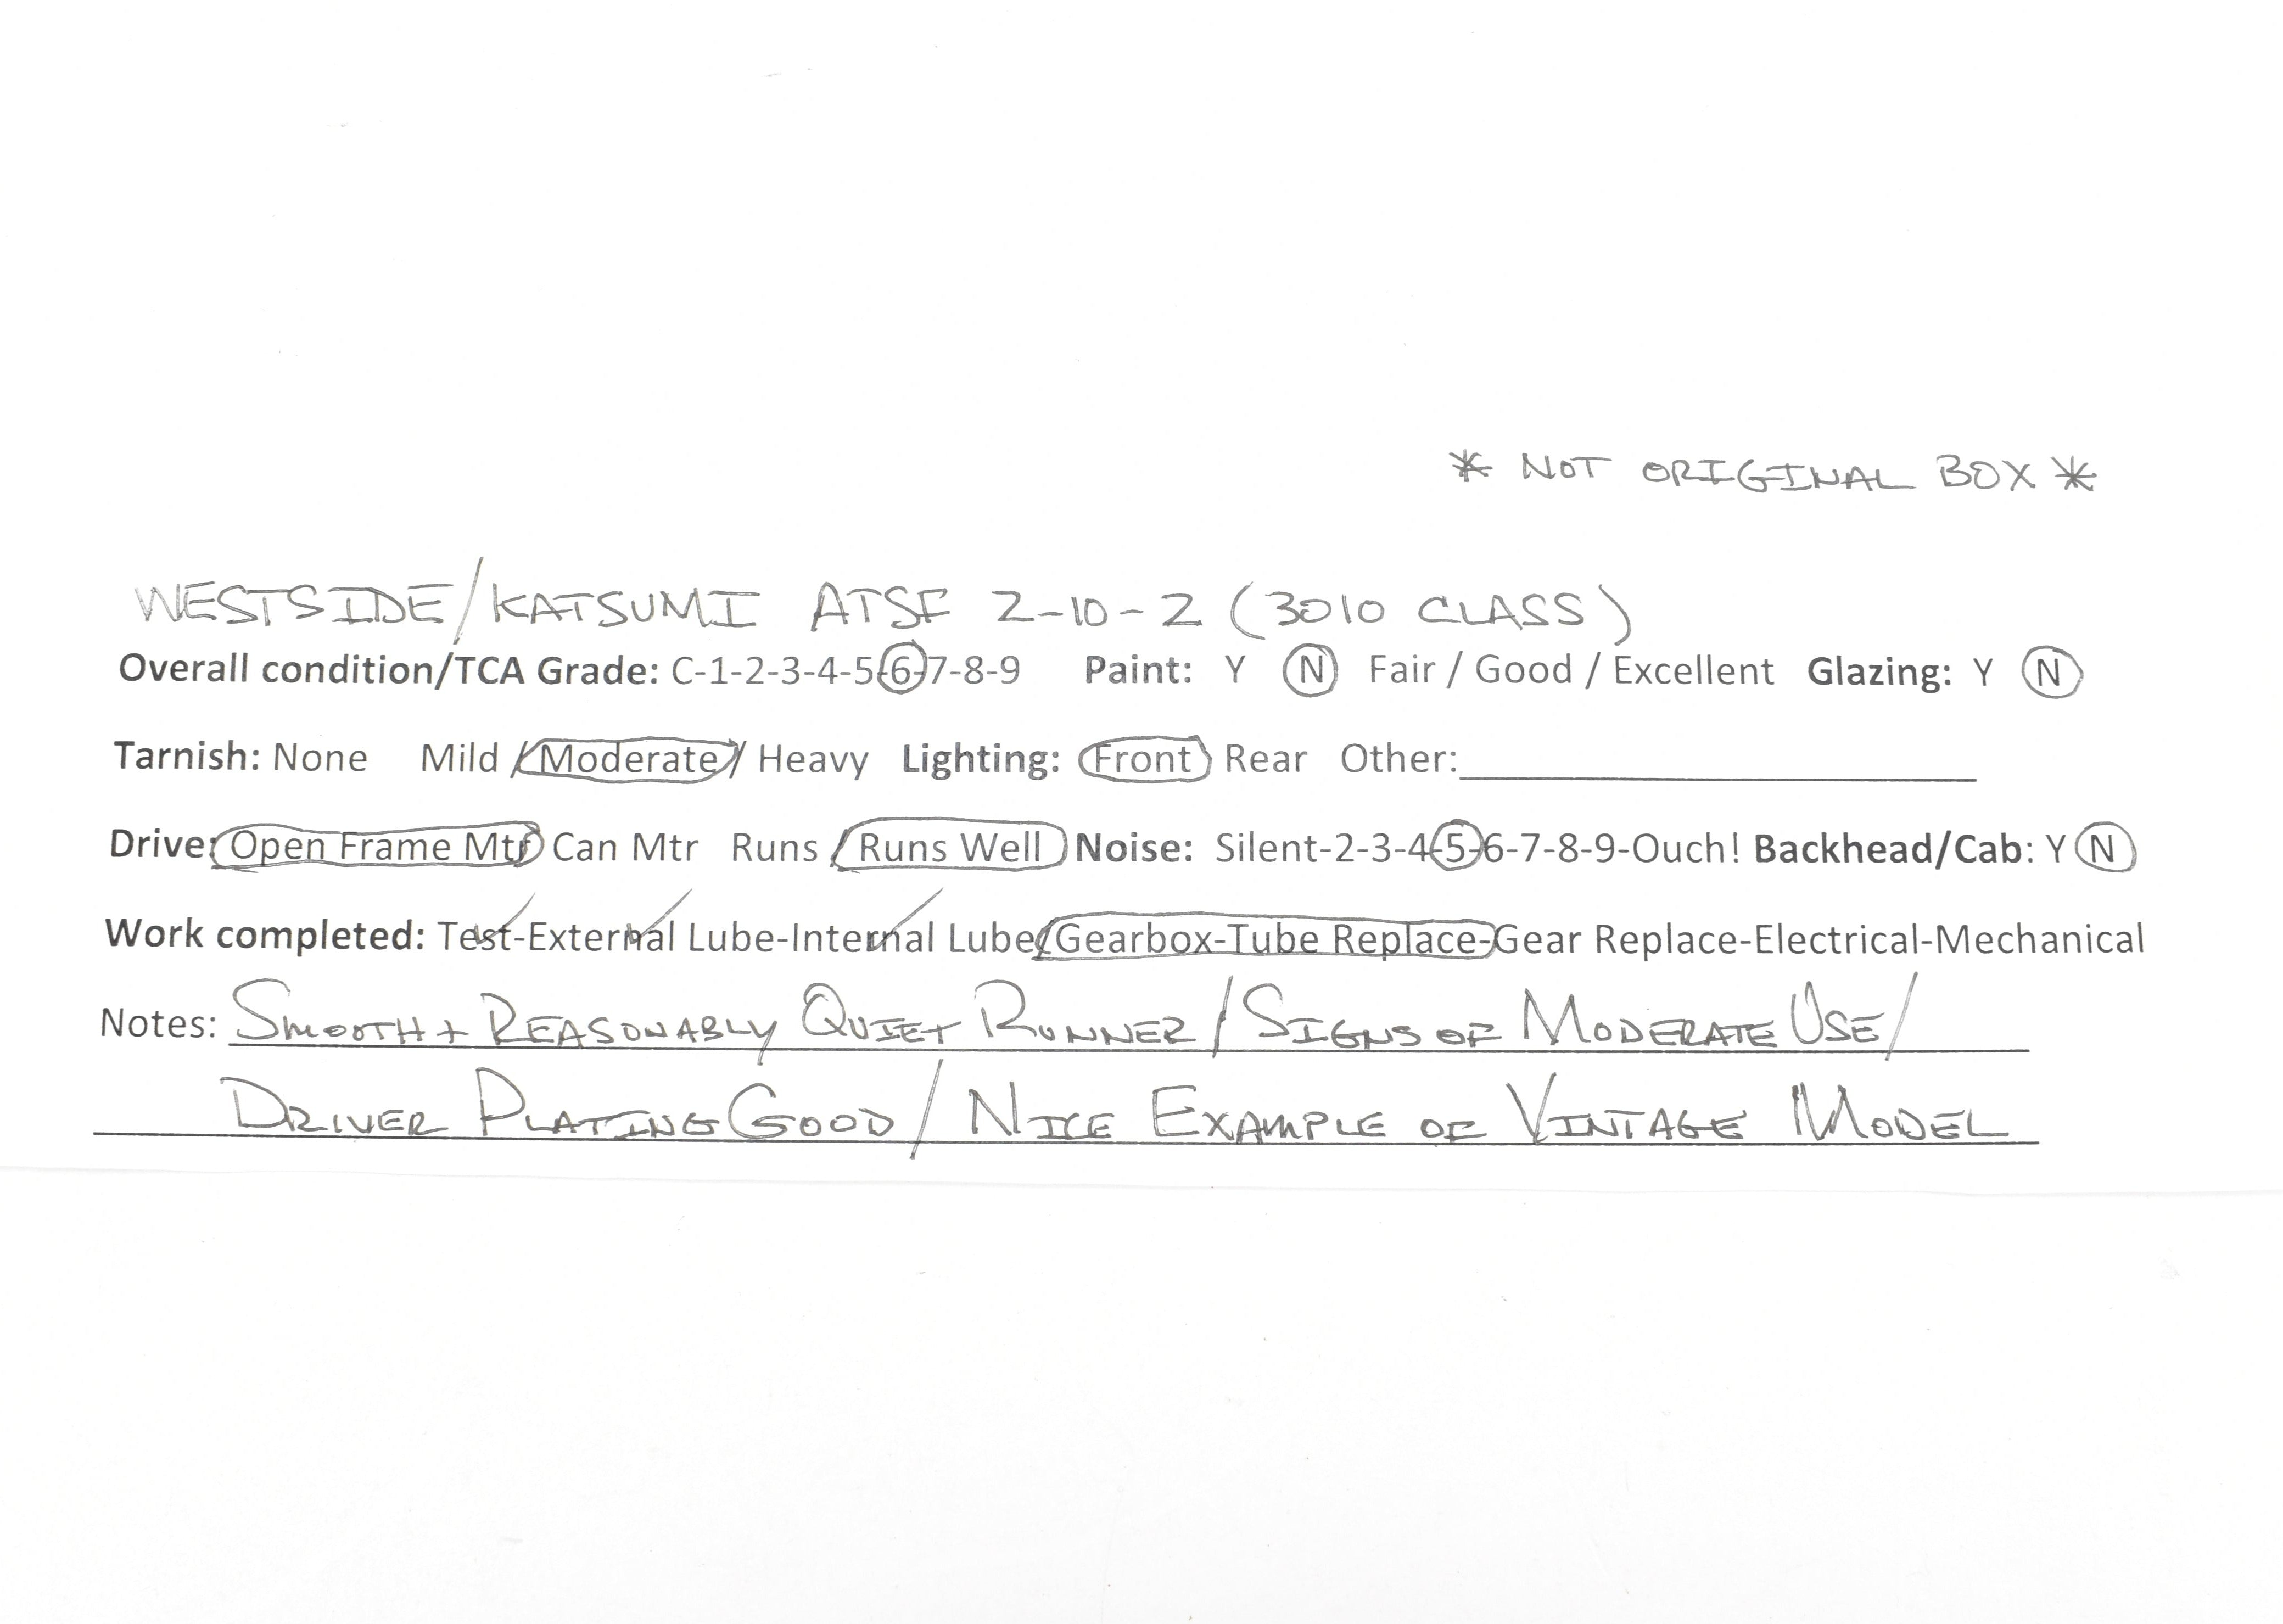 * NOT ORIGINAL BOX *
WESTSIDE/KATSUMI ATSF 2-10-2 (3010 CLASS)
Overall condition/TCA Grade: C-1-2-3-4-5-6-7-8-9 Paint: Y N Fair / Good / Excellent Glazing: Y N
Tarnish: None Mild / Moderate / Heavy Lighting: Front Rear Other:
Drive: Open Frame Mtr Can Mtr Runs / Runs Well Noise: Silent-2-3-4-5-6-7-8-9-Ouch! Backhead/Cab: Y N
Work completed: Test-External Lube-Internal Lube-Gearbox-Tube Replace-Gear Replace-Electrical-Mechanical
Notes: SMOOTH + REASONABLY QUIET RUNNER/SIGNS OF MODERATE USE/
DRIVER PLATING GOOD/NICE EXAMPLE OF VINTAGE MODEL